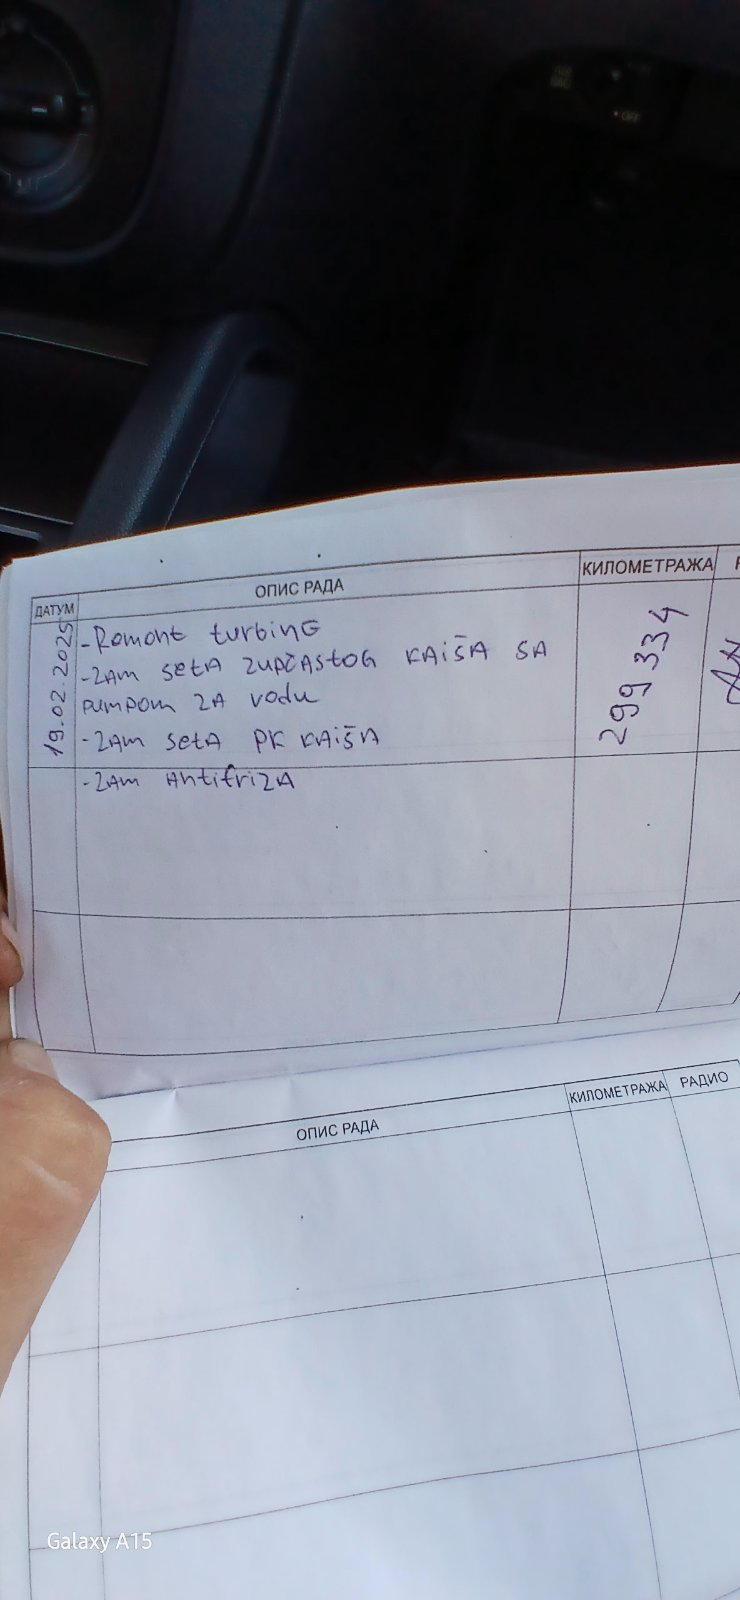 ДАТУМ ОПИС РАДА КИЛОМЕТРАЖА
19.02.2025
-Remont turbinG
-ZAm setA zupčAstog KAišA SA
pumpom ZA vodu
-ZAm setA PK KAišA
299 334
-ZAm Antifriza
ОПИС РАДА КИЛОМЕТРАЖА РАДИО
Galaxy A15